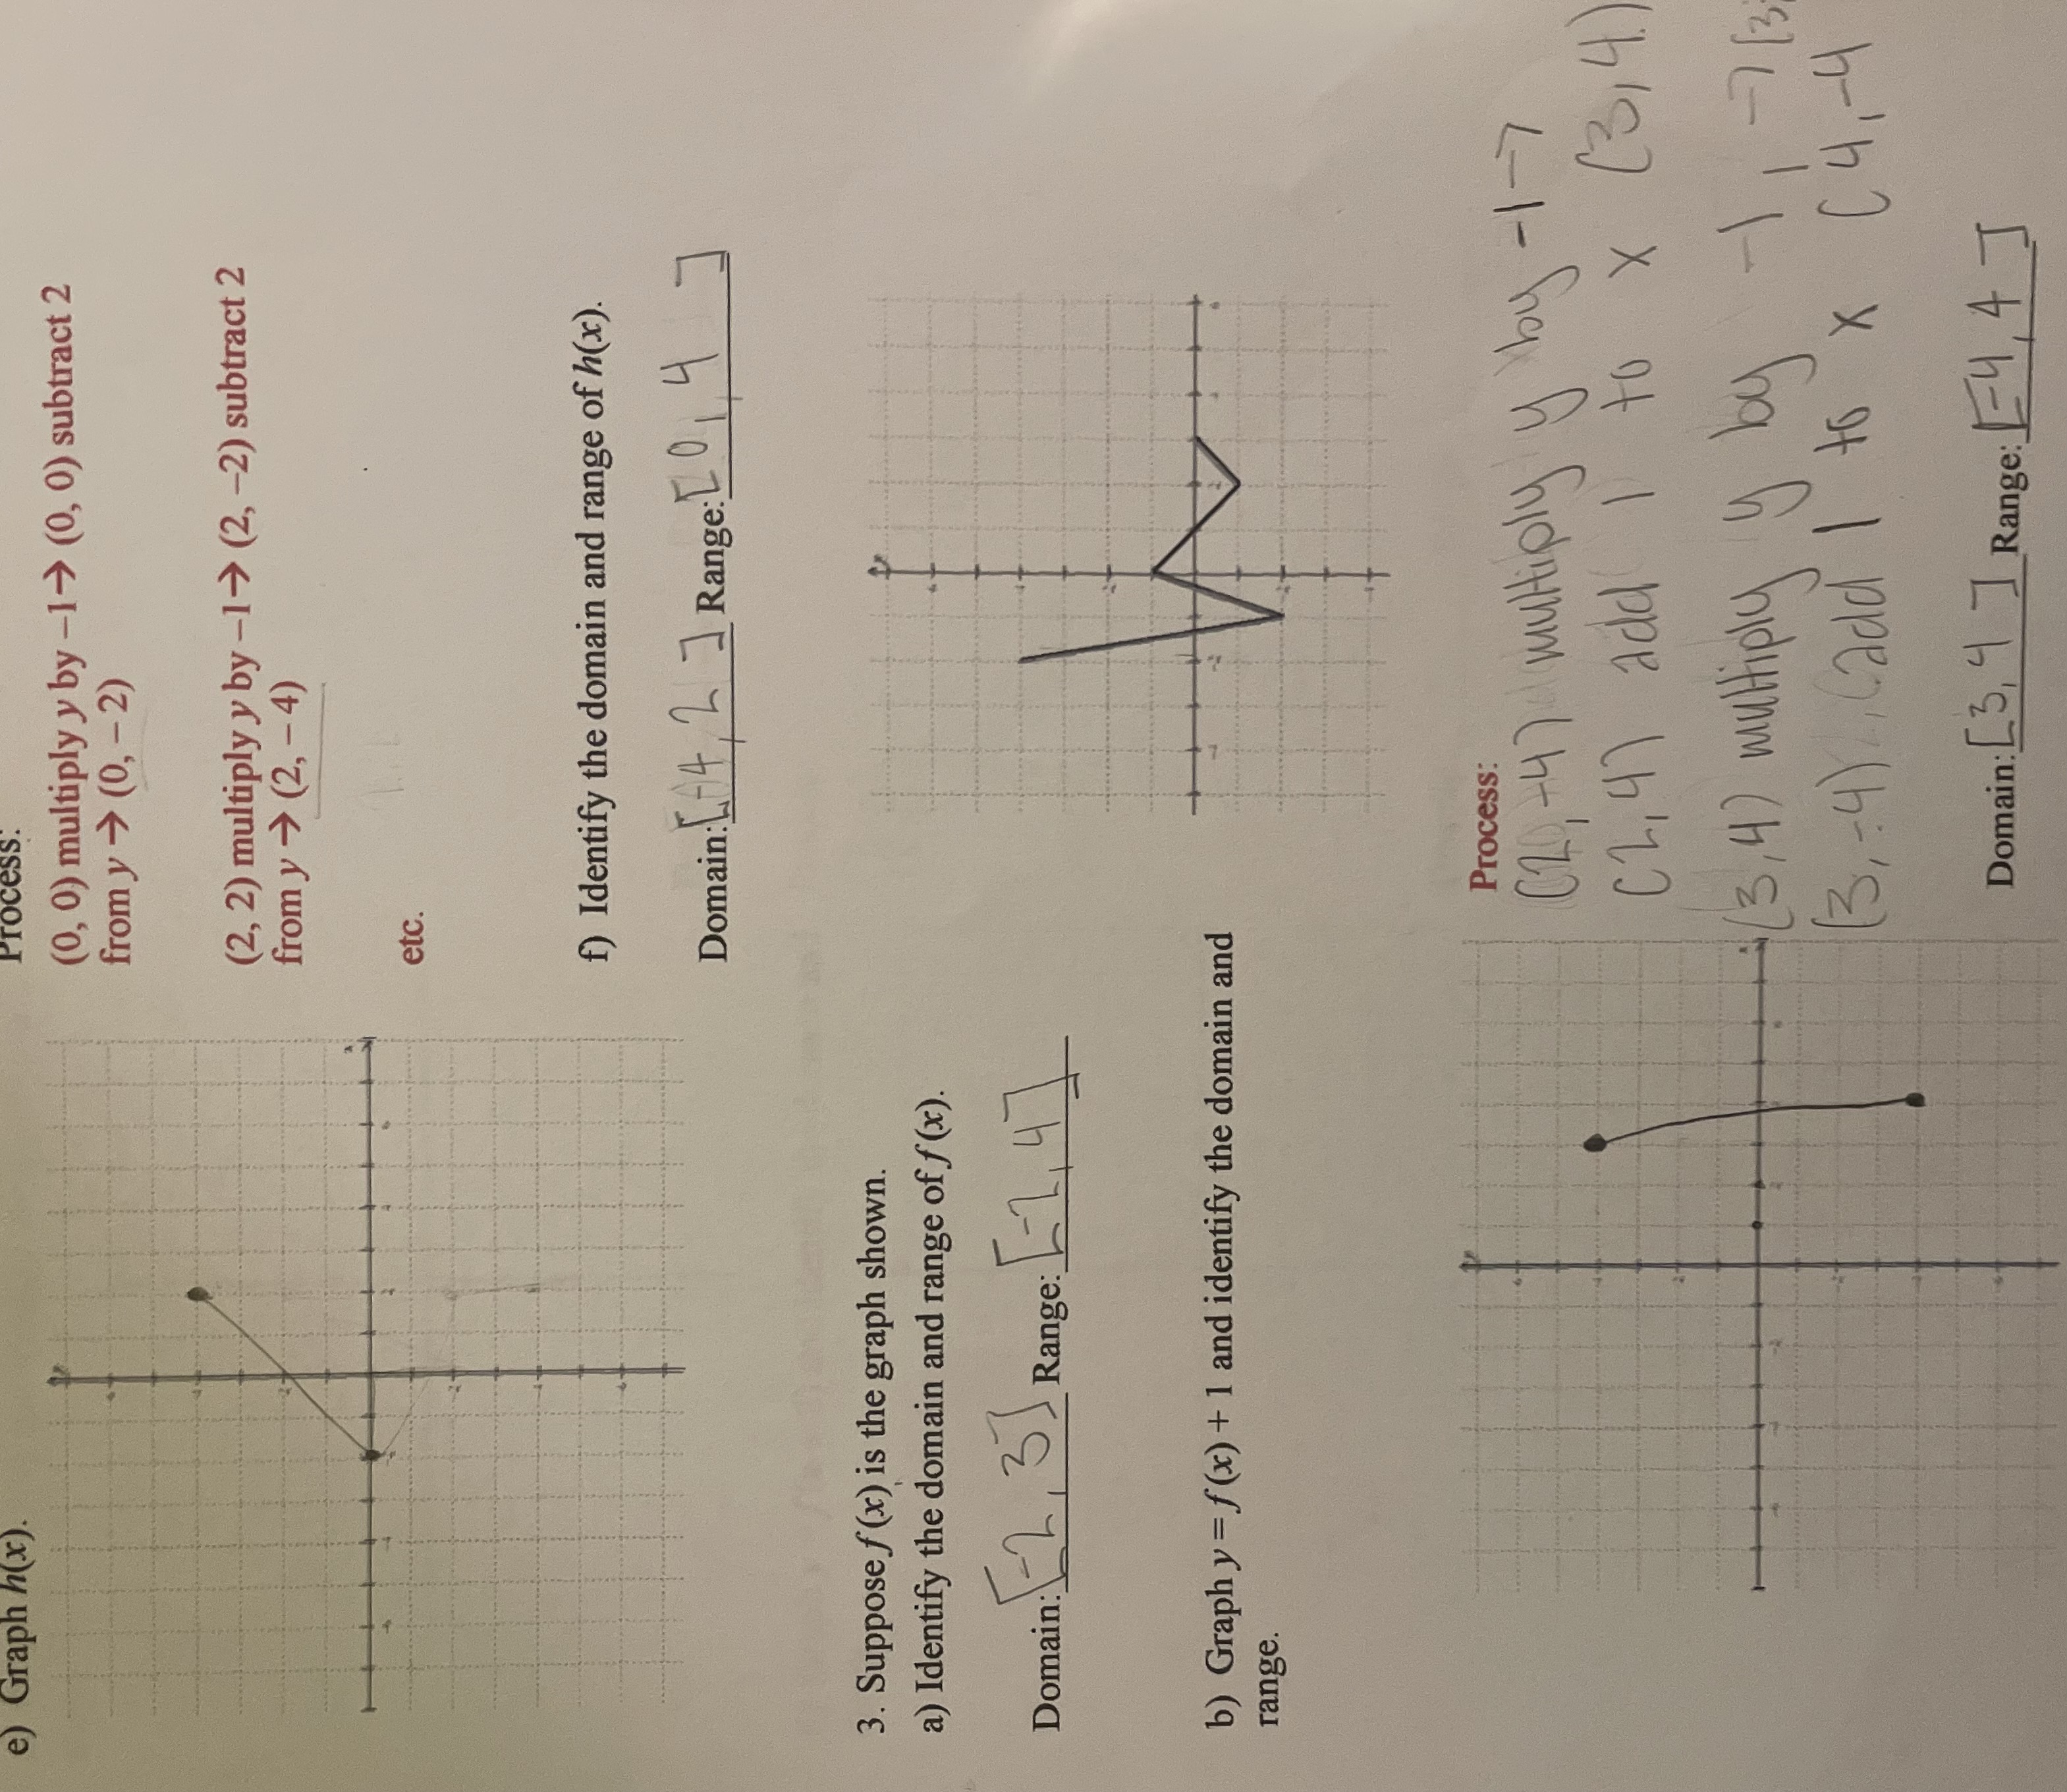 e) Graph h(x).
Process:
(0, 0) multiply y by −1→ (0, 0) subtract 2
from y → (0, −2)
(2, 2) multiply y by −1→ (2, −2) subtract 2
from y → (2, −4)
etc.
f) Identify the domain and range of h(x).
Domain: [-4, 2] Range: [0, 4]
3. Suppose f (x) is the graph shown.
a) Identify the domain and range of f (x).
Domain: [-2, 3] Range: [-2, 4]
b) Graph y = f (x) + 1 and identify the domain and
range.
Process:
(2, -4) multiply y by -1 →
(2, 4) add 1 to x (3, 4)
(3, 4) multiply y by -1 →
(3, -4) add 1 to x (4, -4
Domain: [3, 4] Range: [-4, 4]